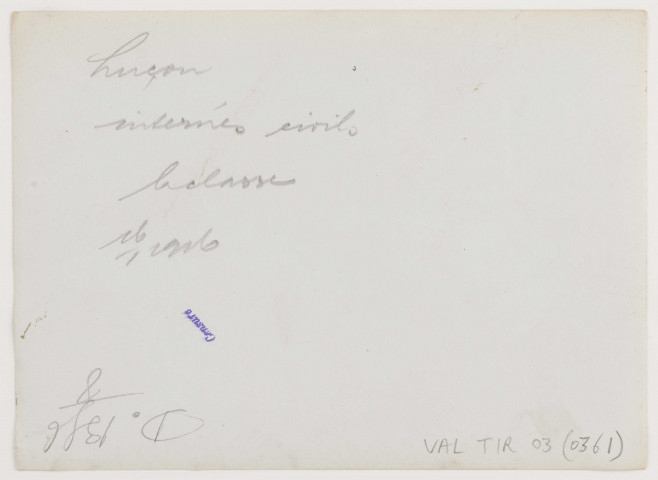 Luçon
internés civils
la classe
1916
Censuré
VAL TIR 03 (0361)